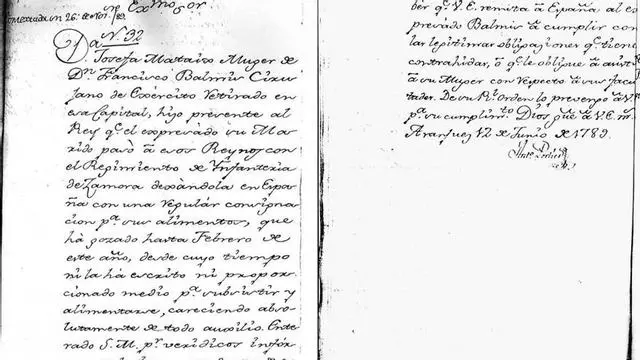 Exmo Sor
Contextada en 26. de Nov. / 89
N. 92
Da Josefa Mataiso Muger de
Dn Francisco Balmis Ciru
jano de Exército Retirado en
esa Capital, hizo presente al
Rey qe el expresado su Ma
rido pasó a esos Reynos con
el Regimiento de Ynfanteria
de Zamora dexandola en Espa
ña con una regular consigna
cion pa sus alimentos, que
ha gozado hasta Febrero de
este año, desde cuyo tiempo
ni la ha escrito ni propor
cionado medio pa subsistir y
alimentarse, careciendo abso
lutamente de todo auxilio. Ente
rado S. M. pr veridicos infor
ber qe V. E. remita a España, al ex
presado Balmis a cumplir con
las legitimas obligaciones qe tiene
contrahidas, ó qe le obligue a asistir
a su Muger con respecto a sus facul
tades. De su Rl Orden lo prevengo a V.
pa su cumplimto Dios gue a V. E. ms
Aranjuez 12 de Junio de 1789.